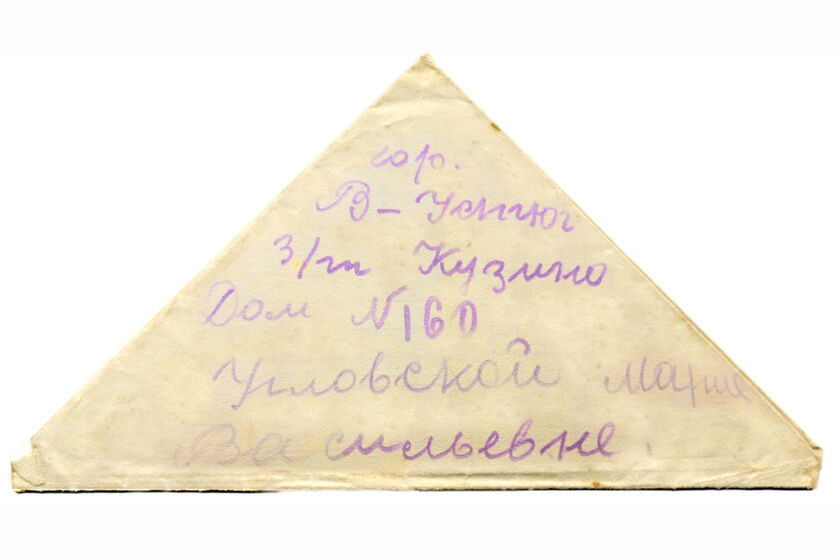 гор.
В-Устюг
З/т Кузино
Дом N160
Угловской Марие
Васильевне.